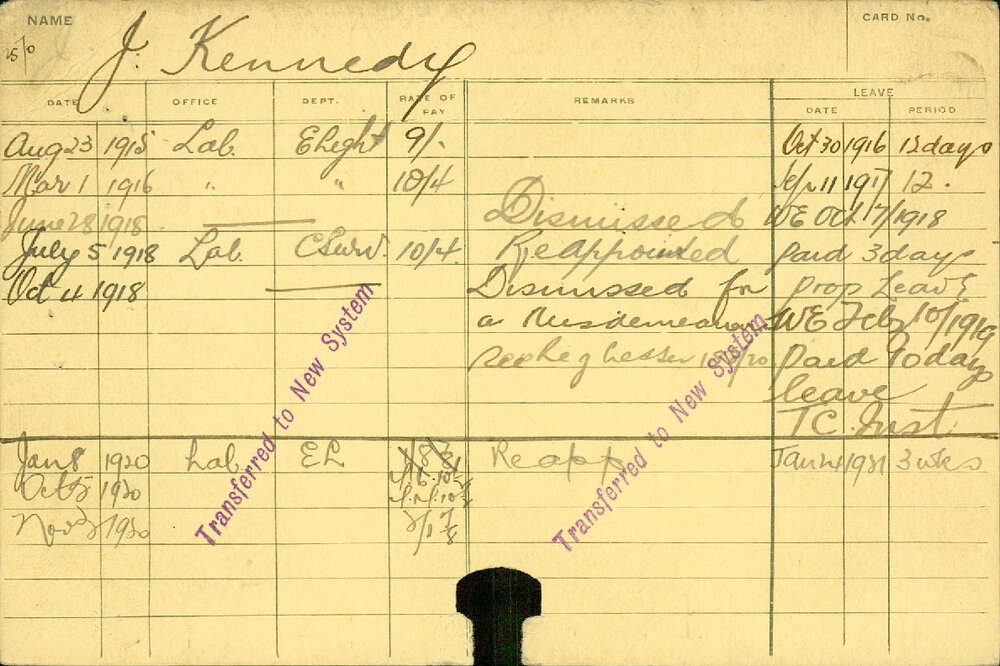 NAME
J. Kennedy
CARD No.
DATE OFFICE DEPT. RATE OF PAY REMARKS LEAVE DATE PERIOD
Aug 23 1915 Lab. Elight 9/- Oct 30 1916 12 days
Mar 1 1916 " " 10/4 Apr 11 1917 12.
June 28 1918 Dismissed WE Oct 7/1918
July 5 1918 Lab. C Surv. 10/4 Reappointed paid 3 days
Oct 4 1918 Dismissed for prop Leave
a Misdemeanour WE Feb 10/1919
paid 10 days
leave
T.C. Inst.
Jan 8 1920 Lab. EL Reapp Jan 24 1921 3 wks
Oct 5 1920
Nov 1920
Transferred to New System
Transferred to New System